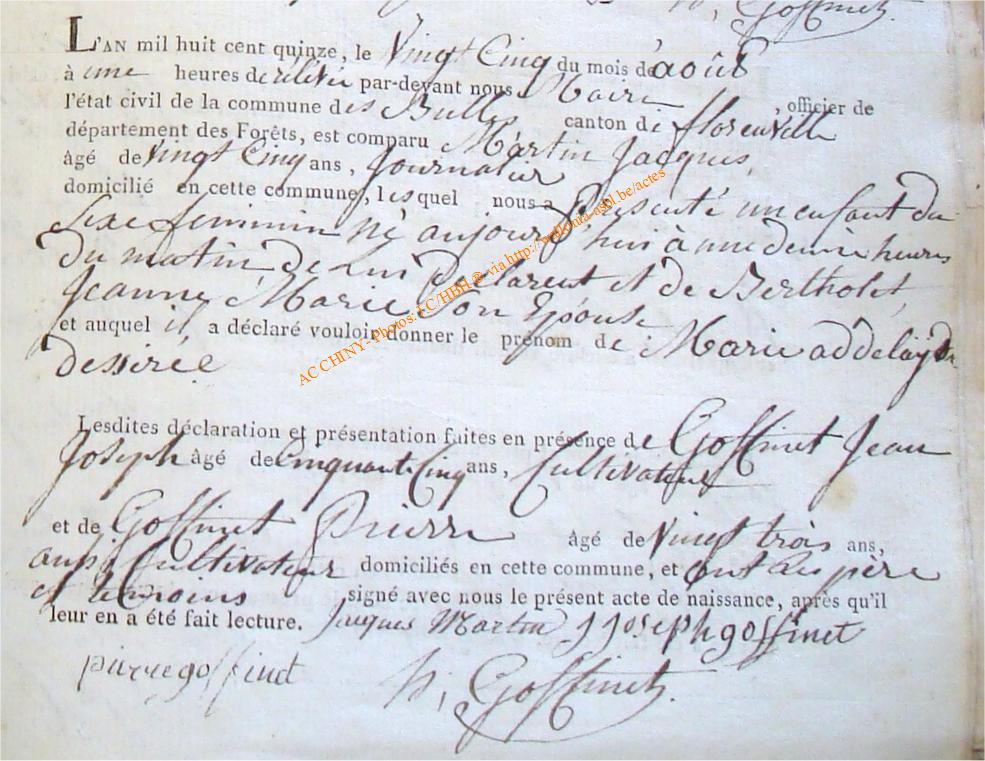 h, Goffinet.
L'AN mil huit cent quinze, le Vingt Cinq du mois de août
à une heures de rélévée par-devant nous Maire, officier de
l'état civil de la commune des Bulles canton de florenville
département des Forêts, est comparu Martin Jacques,
âgé de Vingt Cinq ans, Journalier
domicilié en cette commune, lesquel nous a présenté un enfant du
Sexe feminin né aujourd'hui à une demie heures
du matin de lui déclarent et de Bertholet,
Jeanne Marie Son Epouse
et auquel il a déclaré vouloir donner le prénom de Marie addelayde
dessirée
Lesdites déclaration et présentation faites en présence de Goffinet Jean
Joseph âgé de Cinquante Cinq ans, Cultivateur
et de Goffinet Pierre âgé de Vingt trois ans,
aussi Cultivateur domiciliés en cette commune, et ont les père
et temoins signé avec nous le présent acte de naissance, après qu'il
leur en a été fait lecture. Jacques Martin J Joseph goffinet
pierre goffinet h, Goffinet.
AC CHINY - Photos: EC/HBH ® via http://wallonia-asbl.be/actes